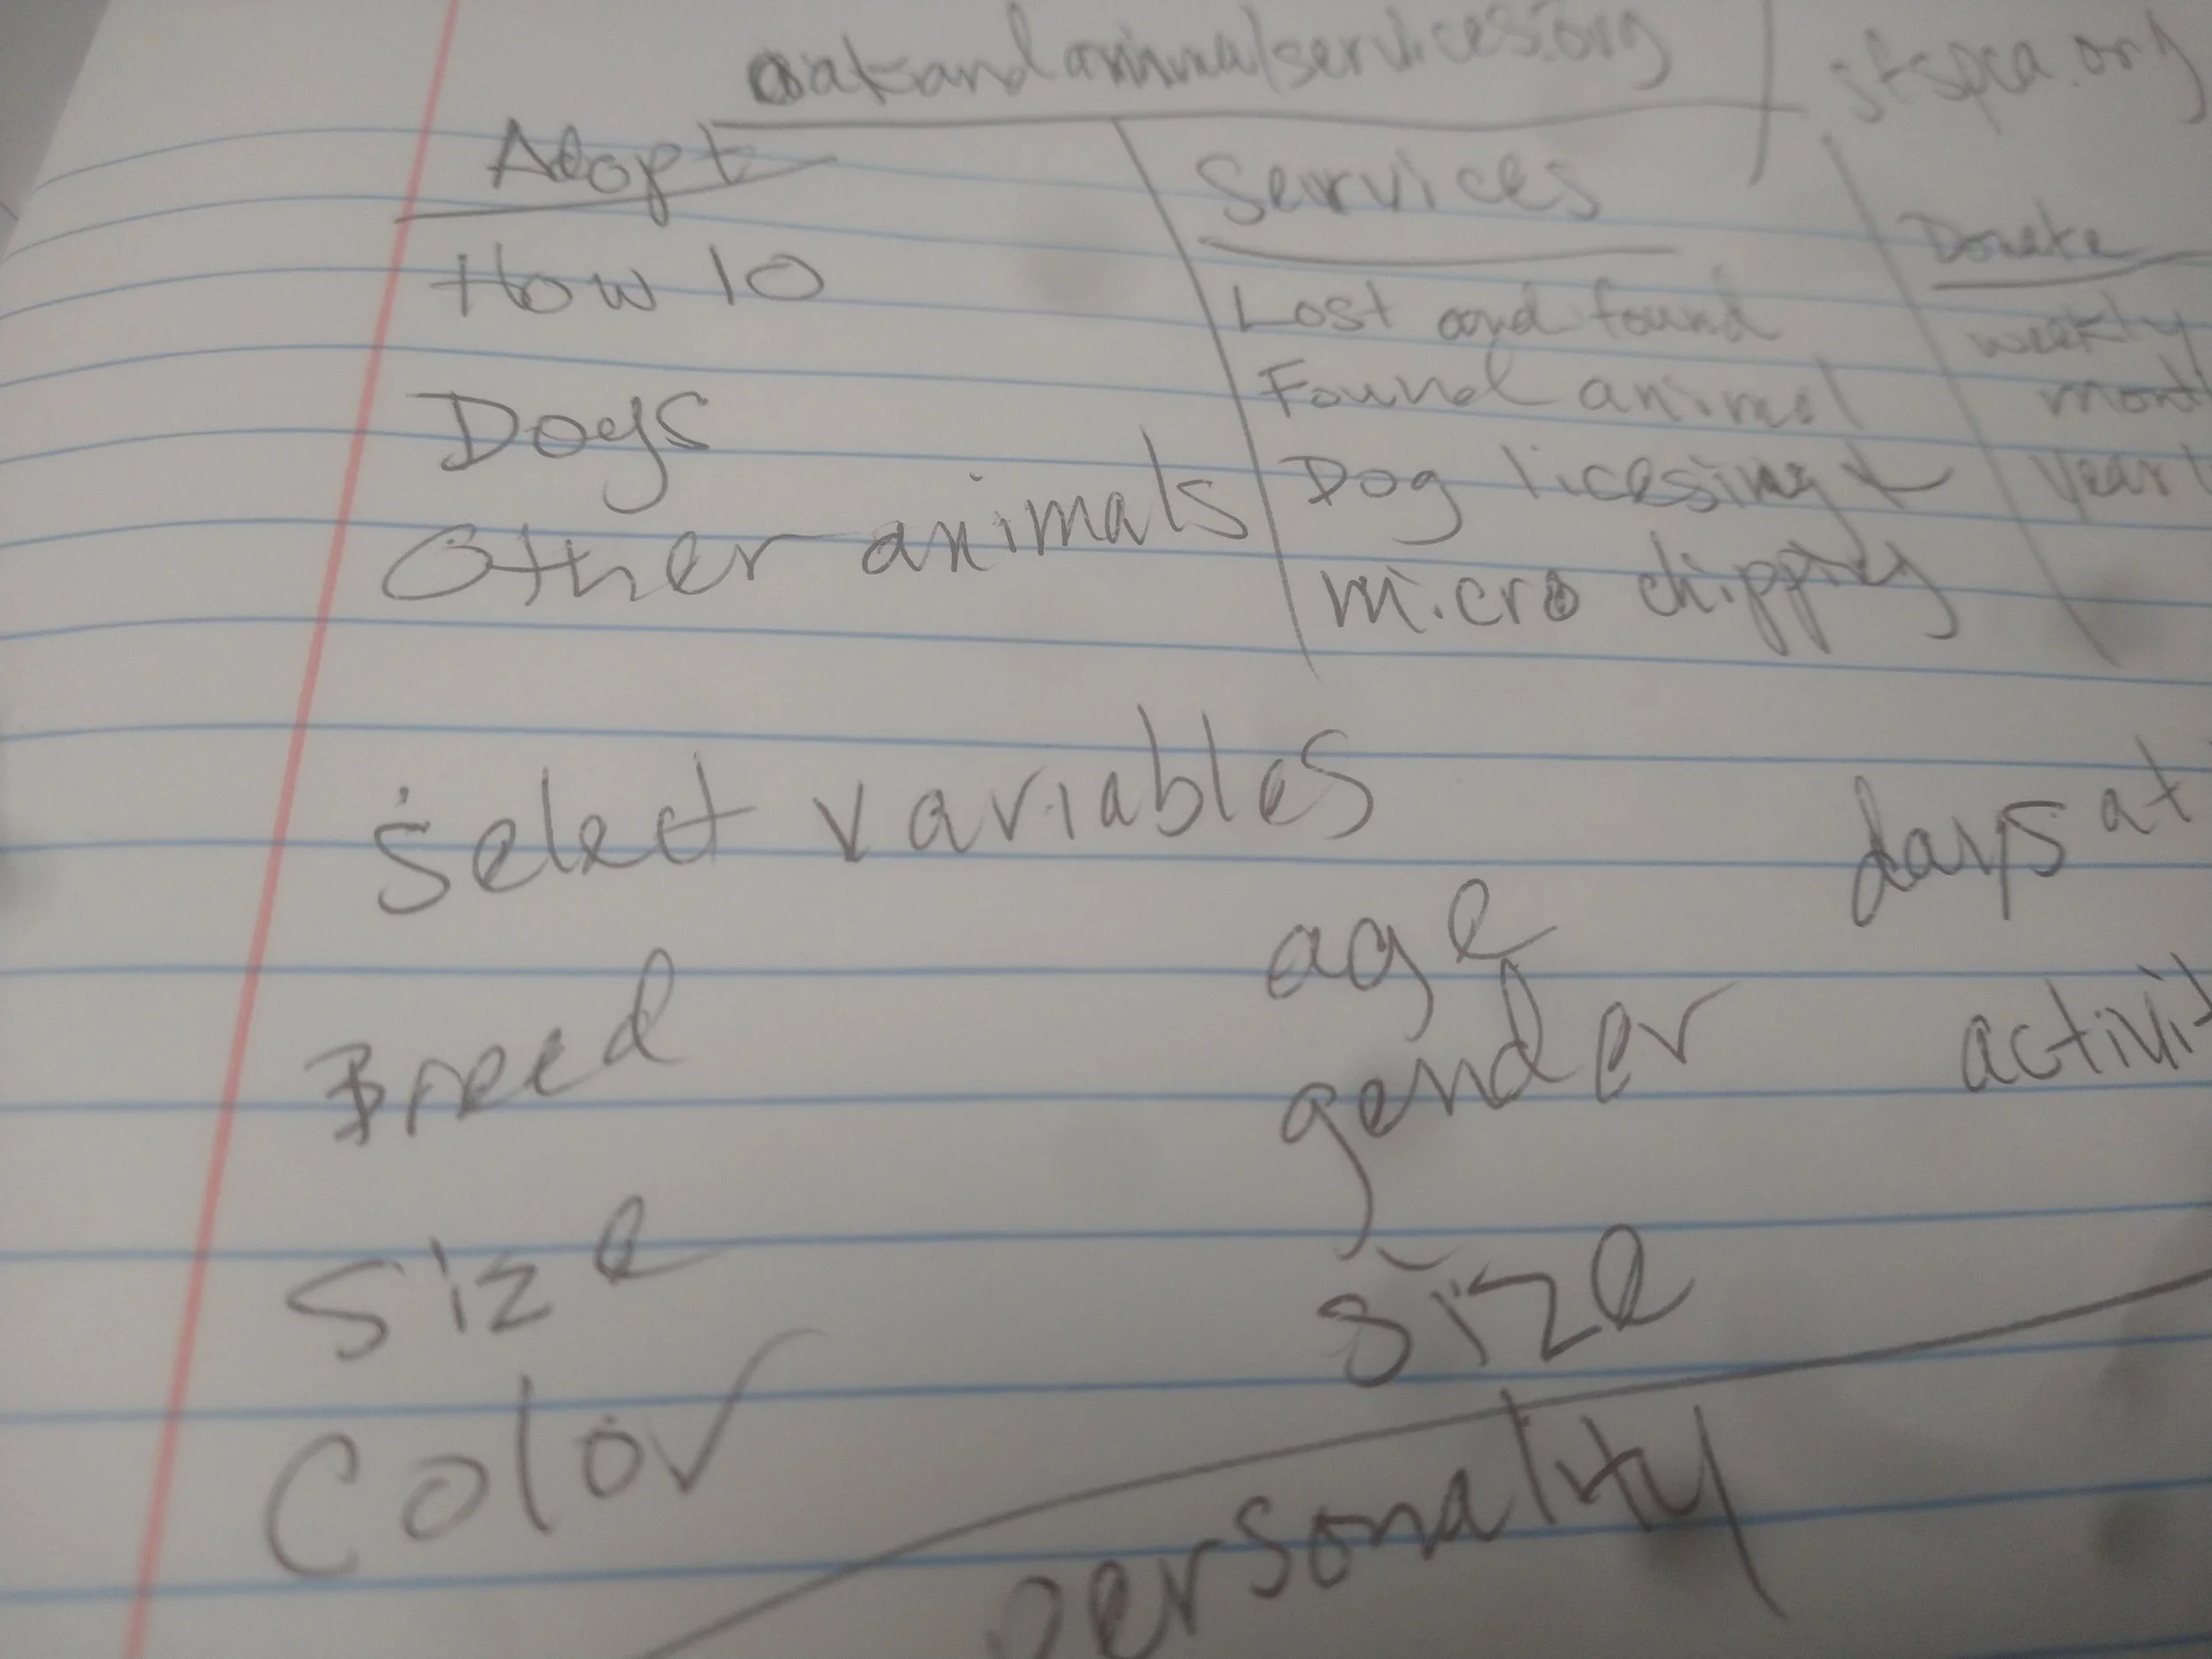 oaklandanimalservices.org sfspca.org
Adopt
How to
Dogs
Other animals
Services
Lost and found
Found animal
Dog licesing +
micro chipping
Donate
weekly
mont
yearl
Select variables
Breed
Size
Color
age
gender
Size
days at
activit
personality